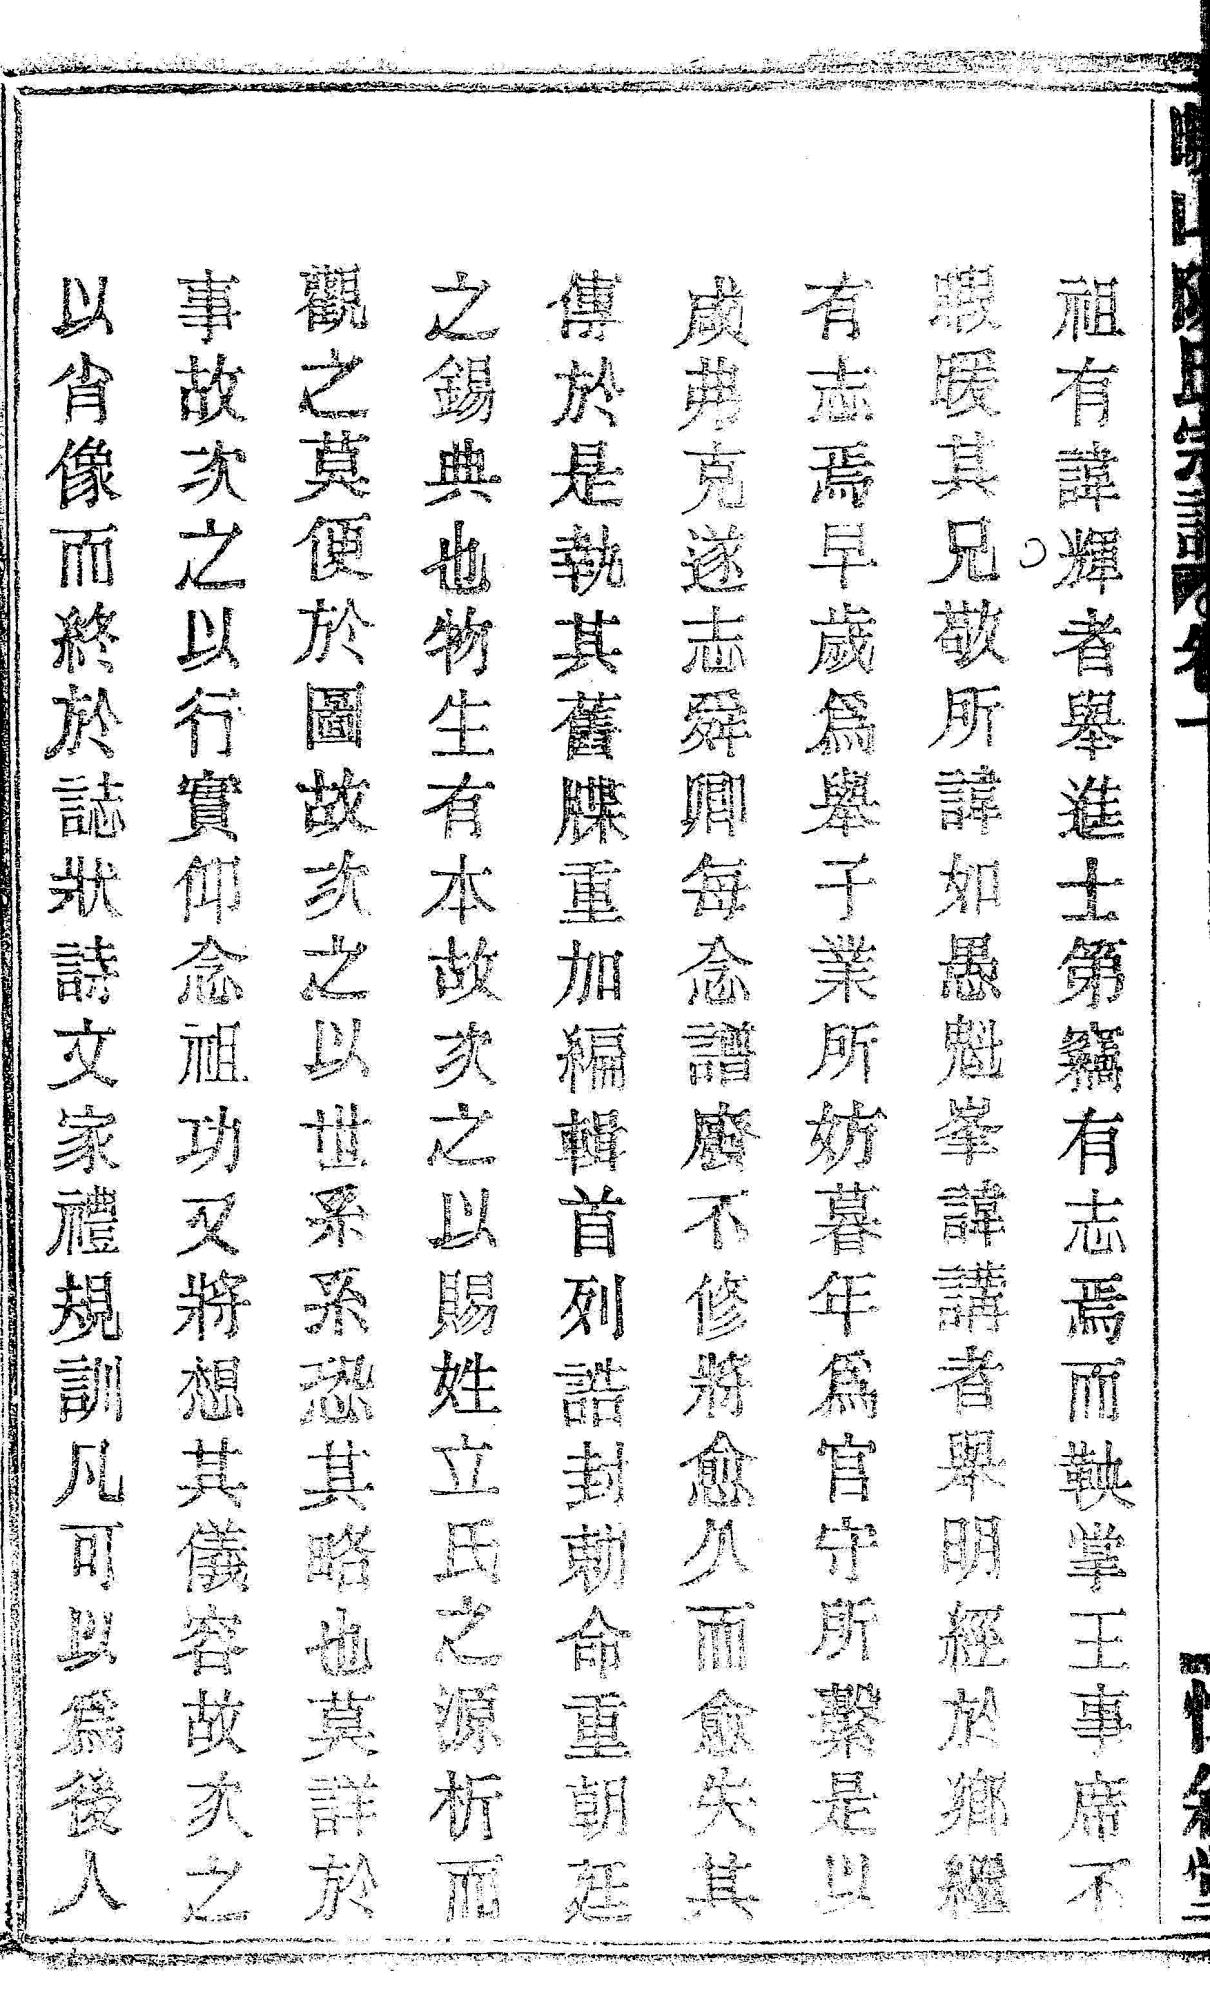 祖有諱輝者舉進士第竊有志焉而鞅掌王事席不
暇暖其兄敬所諱如愚魁峯諱講者舉明經於鄉繼
有志焉早歲爲舉子業所妨暮年爲官守所繫是以
咸弗克遂志舜卿每念譜廢不修將愈久而愈失其
傳於是執其舊牒重加編輯首列誥封勅命重朝廷
之錫典也物生有本故次之以賜姓立氏之源析而
觀之莫便於圖故次之以世系系恐其略也莫詳於
事故次之以行實仰念祖功又將想其儀容故次之
以肖像而終於誌狀詩文家禮規訓凡可以爲後人